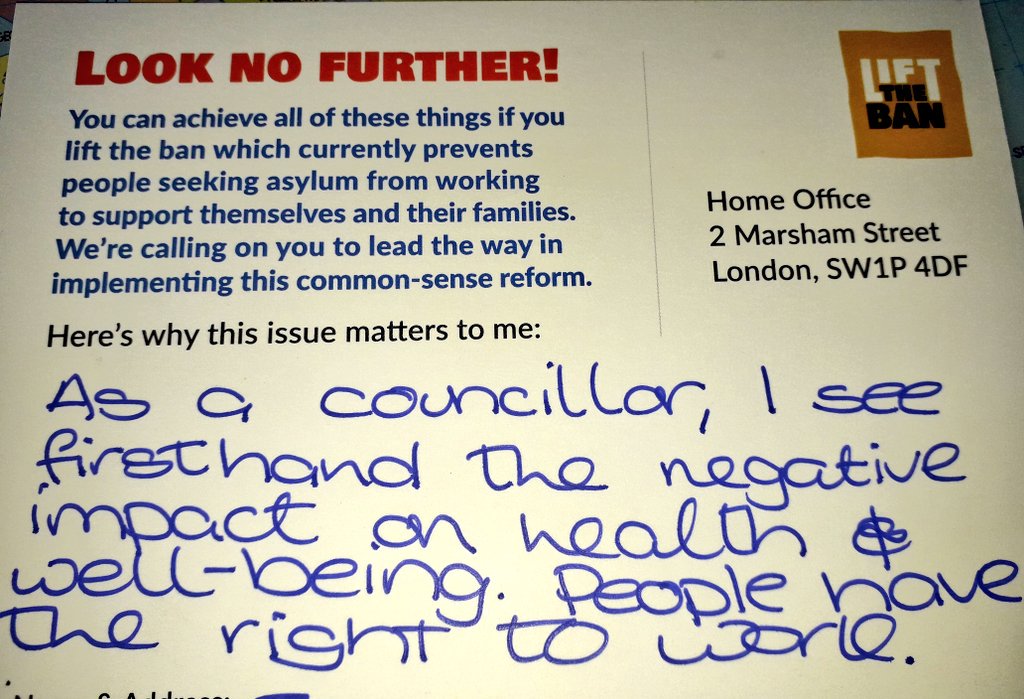 LOOK NO FURTHER!
You can achieve all of these things if you
lift the ban which currently prevents
people seeking asylum from working
to support themselves and their families.
We're calling on you to lead the way in
implementing this common-sense reform.
LIFT
THE
BAN
Home Office
2 Marsham Street
London, SW1P 4DF
Here's why this issue matters to me:
As a councillor, I see
firsthand the negative
impact on health &
well-being. People have
the right to work.
& Address: